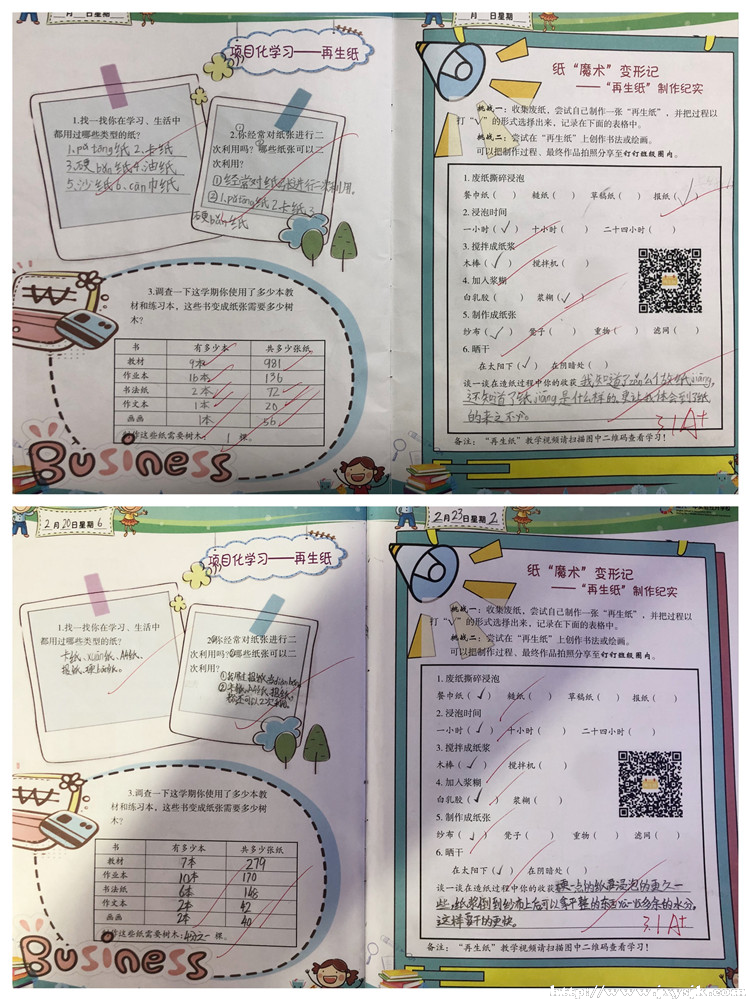 月 日星期
项目化学习——再生纸
1.找一找你在学习、生活中
都用过哪些类型的纸?
1.pū tōng纸 2.卡纸
3.硬bǎn纸 4.油纸
5.沙纸 6.cān巾纸
2.你经常对纸张进行二
次利用吗?哪些纸张可以二
次利用?
①经常对纸张进行二次利用。
②1.pǔ tōng纸 2.卡纸 3.
硬bǎn纸
3.调查一下这学期你使用了多少本教
材和练习本,这些书变成纸张需要多少树
木?
书 有多少本 共多少张纸
教材 9本 981
作业本 16本 136
书法纸 2本 72
作文本 1本 20
画画 1本 56
制作这些纸需要树木: 1 棵。
Business
月 日星期
纸“魔术”变形记
——“再生纸”制作纪实
挑战一:收集废纸,尝试自己制作一张“再生纸”,并把过程以
打“√”的形式选择出来,记录在下面的表格中。
挑战二:尝试在“再生纸”上创作书法或绘画。
可以把制作过程、最终作品拍照分享至钉钉班级圈内。
1.废纸撕碎浸泡
餐巾纸( ) 糙纸( ) 草稿纸( ) 报纸(√)
2.浸泡时间
一小时(√) 十小时( ) 二十四小时( )
3.搅拌成纸浆
木棒(√) 搅拌机( )
4.加入浆糊
白乳胶( ) 浆糊(√)
5.制作成纸张
纱布(√) 凳子( ) 重物( ) 滤网( )
6.晒干
在太阳下(√) 在阴暗处( )
谈一谈在造纸过程中你的收获 我知道了zěn么们做纸jiāng,
还知道了纸jiāng是什么样的,更让我体会到了纸
的来之不易。
3.1 A+
备注:“再生纸”教学视频请扫描图中二维码查看学习!
2月20日星期6
项目化学习——再生纸
1.找一找你在学习、生活中
都用过哪些类型的纸?
卡纸、xuān纸、A4纸、
报纸、硬bǎn纸。
2.你经常对纸张进行二
次利用吗?哪些纸张可以二
次利用?
②卡纸、A4纸、报纸,
都还可以2次利用。
3.调查一下这学期你使用了多少本教
材和练习本,这些书变成纸张需要多少树
木?
书 有多少本 共多少张纸
教材 7本 279
作业本 10本 170
书法纸 6本 148
作文本 2本 42
画画 2本 40
制作这些纸需要树木: 4分之一 棵。
Business
2月23日星期2
纸“魔术”变形记
——“再生纸”制作纪实
挑战一:收集废纸,尝试自己制作一张“再生纸”,并把过程以
打“√”的形式选择出来,记录在下面的表格中。
挑战二:尝试在“再生纸”上创作书法或绘画。
可以把制作过程、最终作品拍照分享至钉钉班级圈内。
1.废纸撕碎浸泡
餐巾纸(√) 糙纸( ) 草稿纸( ) 报纸( )
2.浸泡时间
一小时(√) 十小时( ) 二十四小时( )
3.搅拌成纸浆
木棒(√) 搅拌机( )
4.加入浆糊
白乳胶(√) 浆糊( )
5.制作成纸张
纱布(√) 凳子( ) 重物( ) 滤网( )
6.晒干
在太阳下(√) 在阴暗处( )
谈一谈在造纸过程中你的收获 硬一点的纸要浸泡的更久一
些,纸浆倒到纱布上后可以拿平整的东西吸多余的水分,
这样会干的更快。
3.1 A+
备注:“再生纸”教学视频请扫描图中二维码查看学习!